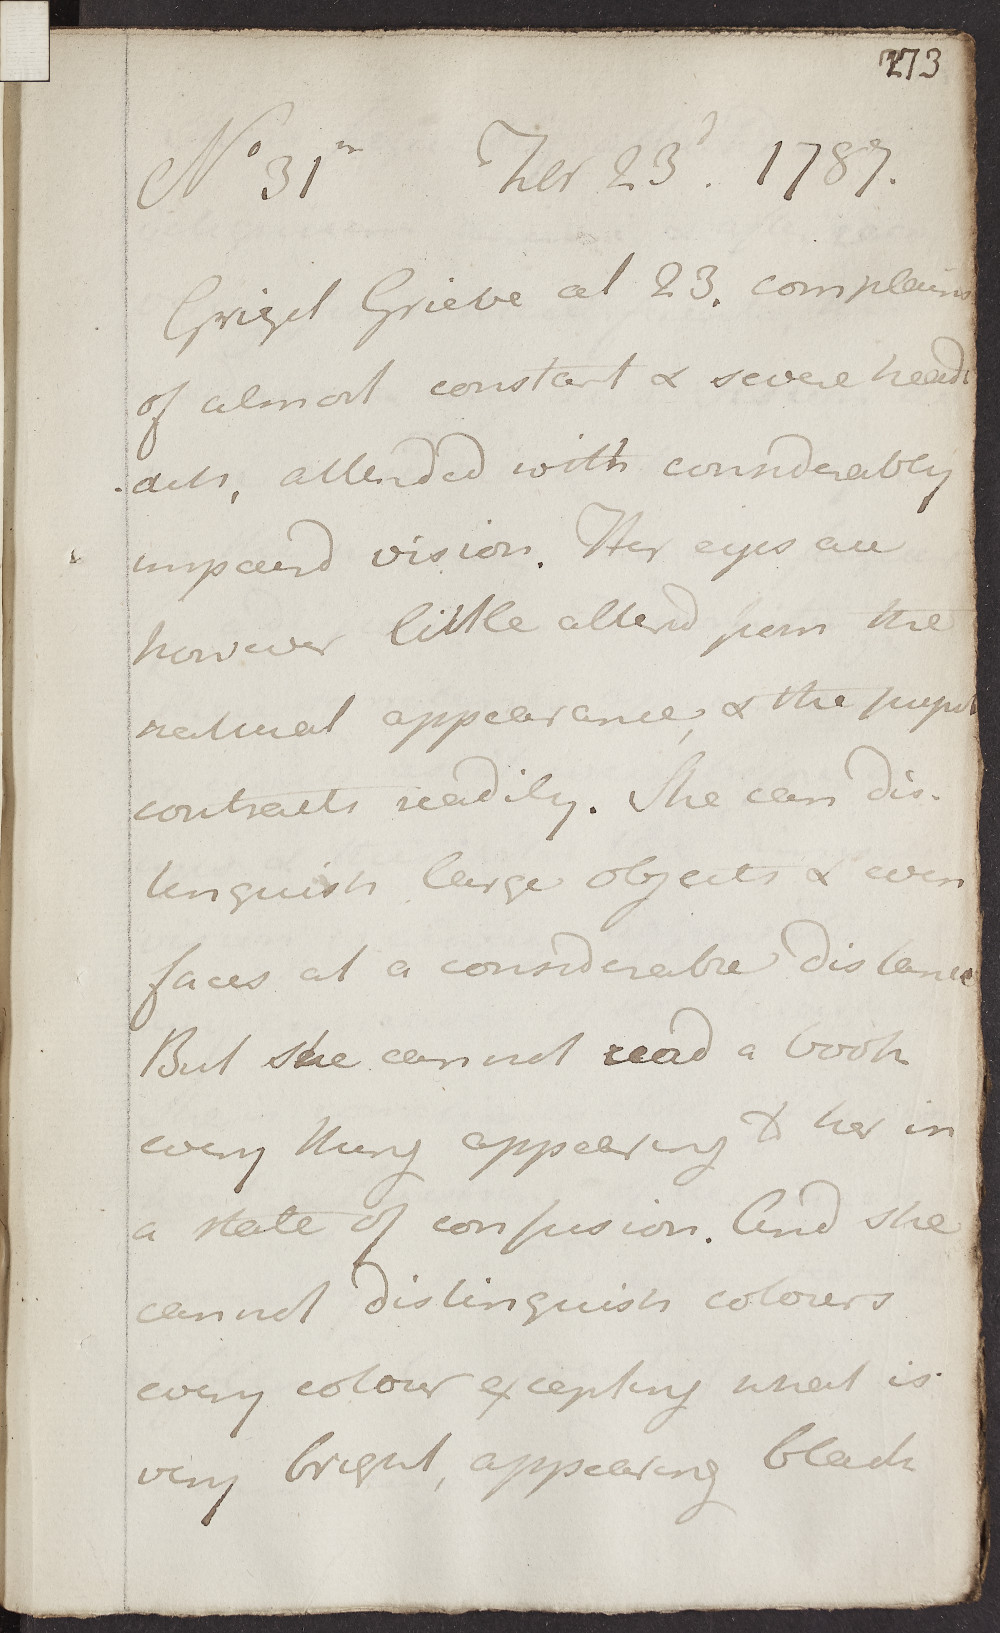 273
No 31m 7ber 23d. 1787.
Grizel Grieve æt 23. complains
of almost constant & severe head
achs, attended with considerably
impaired vision. Her eyes are
however little altered from the
natural appearance, & the pupil
contracts readily. She can dis-
tinguish large objects & even
faces at a considerable distance
But she cannot read a book
every thing appearing to her in
a state of confusion. And she
cannot distinguish colours
every colour excepting what is
very bright, appearing black